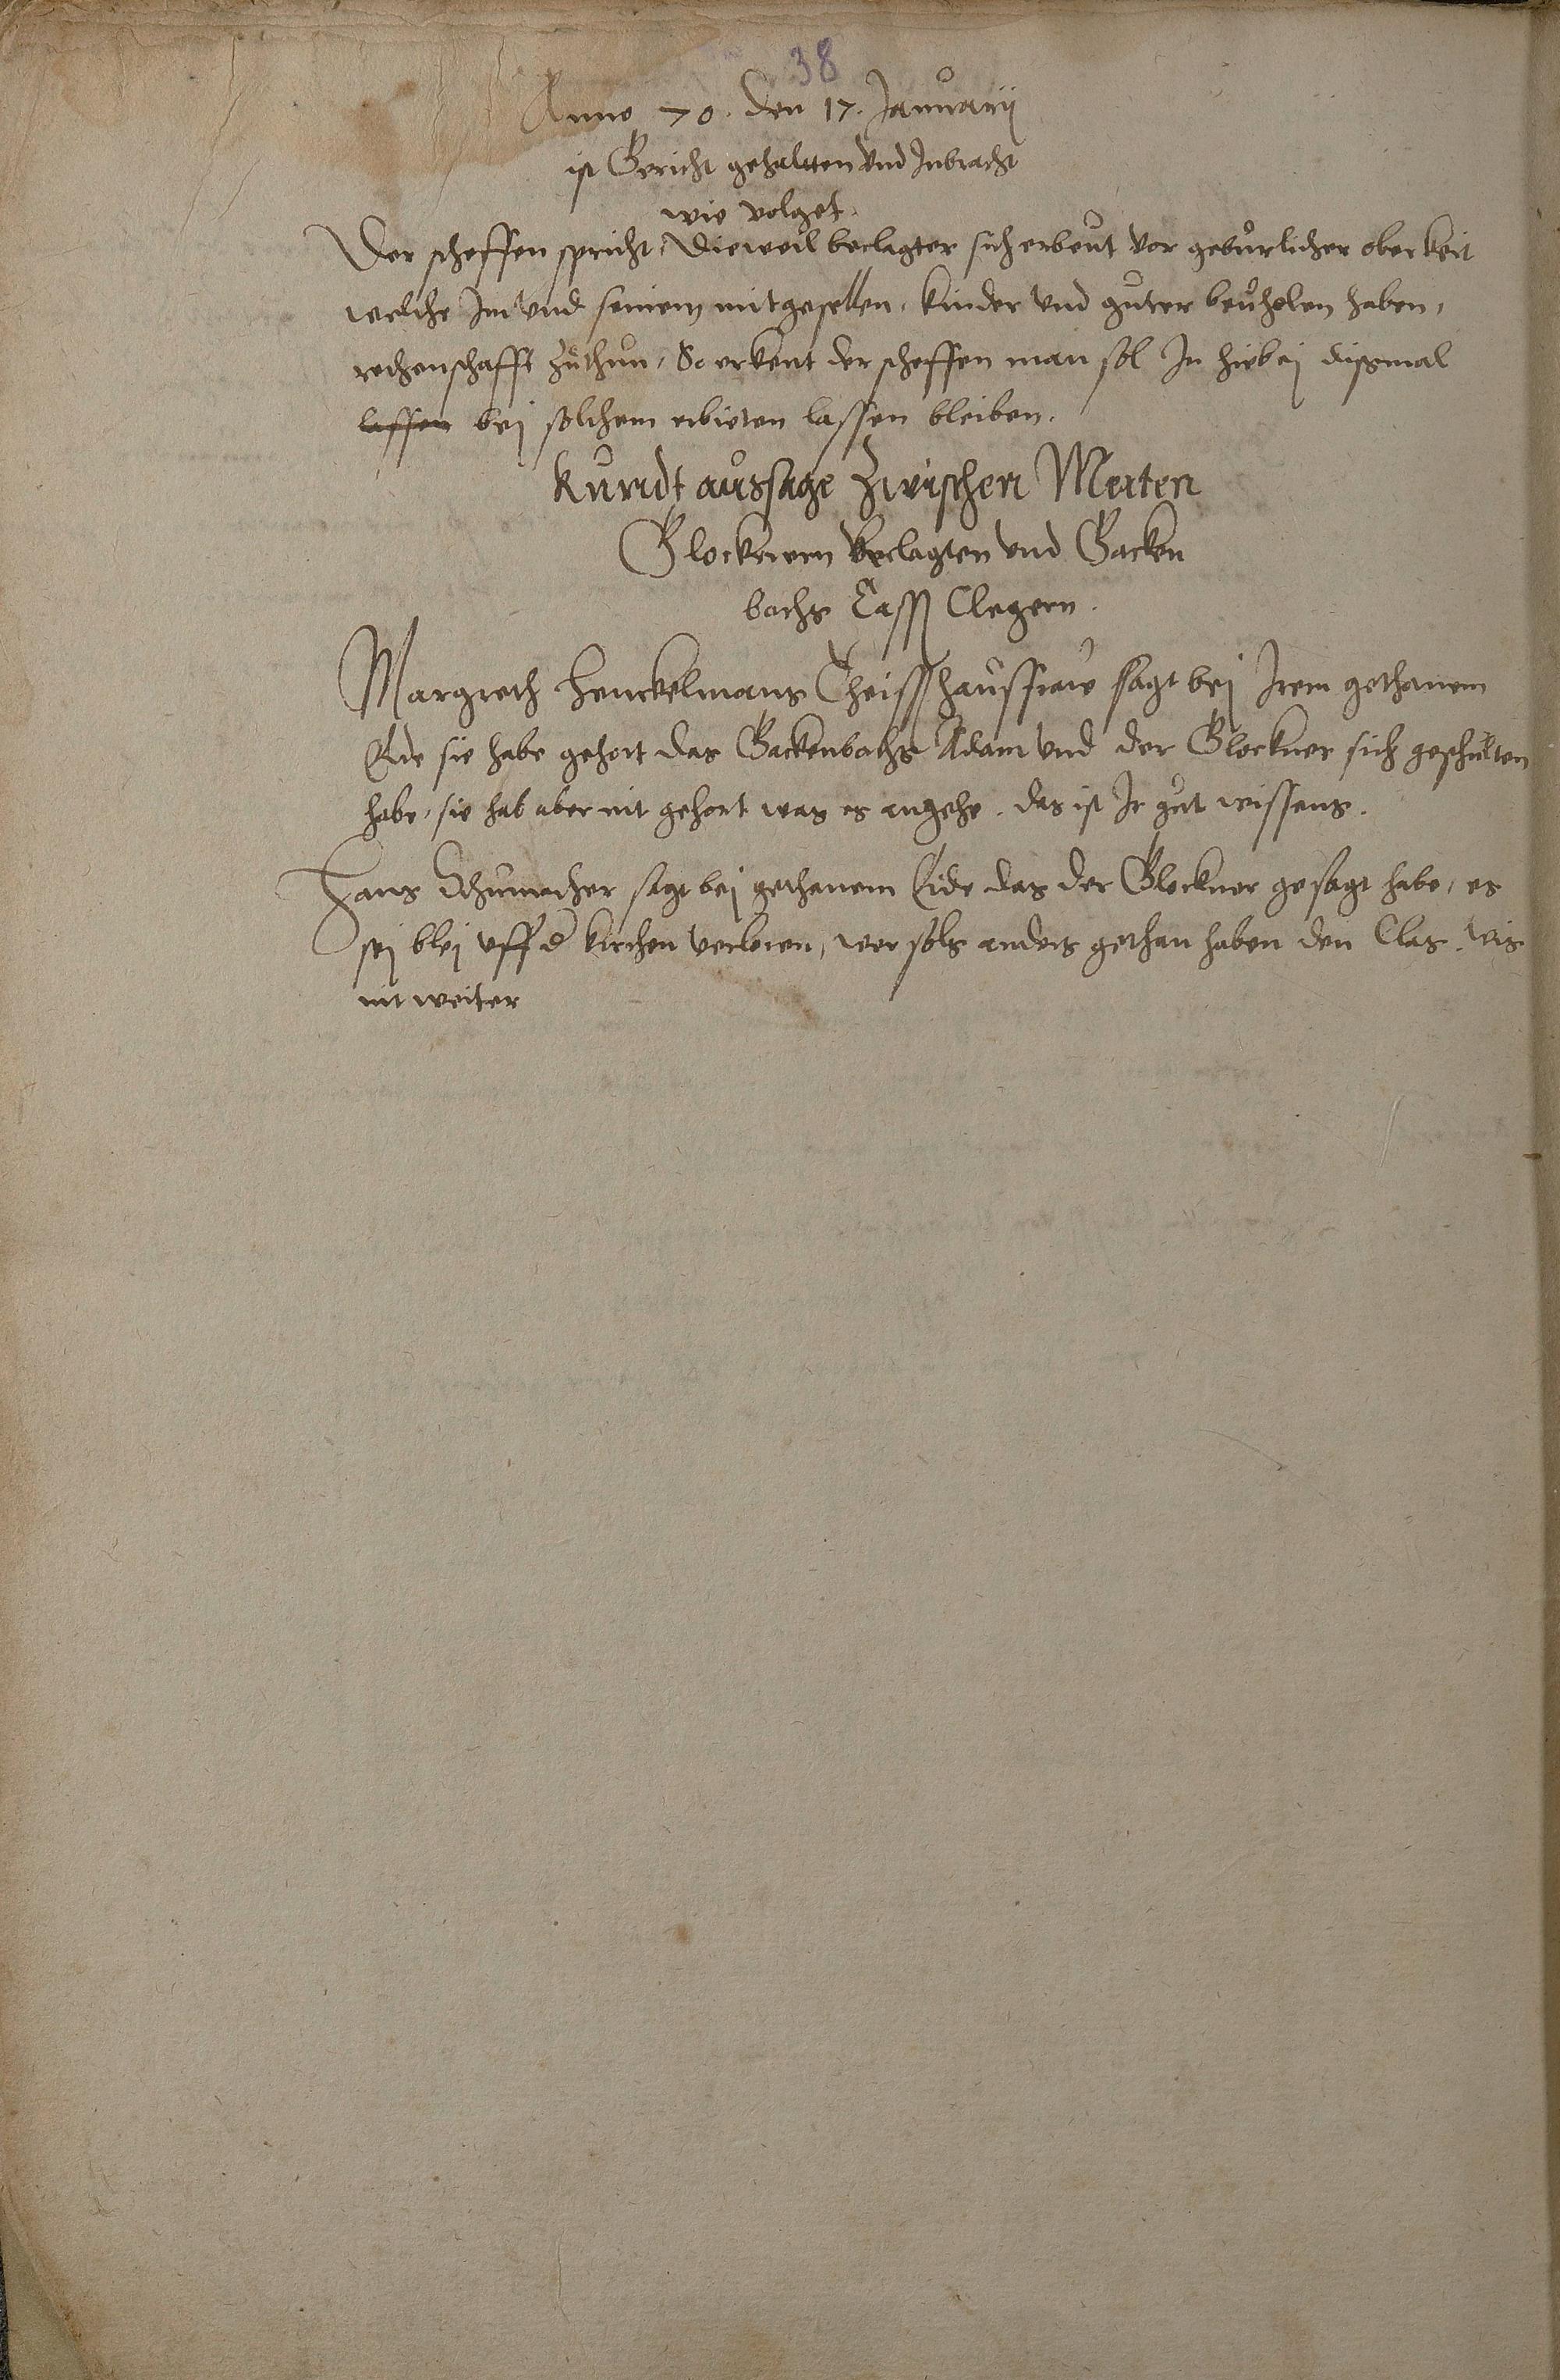 38
Anno 70. den 17. Januarij
ist Gericht gehaltten vnd Inbracht
wie volget.
Der scheffen spricht, Dieweil beclagter sich erbeut vor geburlicher oberkeit
welche Im vnd seinem mitgesellen, kinder vnd guter beuholen haben,
rechenschafft zuthun, So erkent der scheffen man sol In hirbeij dissmal
lassen beij solchem erbieten lassen bleiben.
Kundt aussage zwischen Merten
Glocknern beclagten vnd Gacken
bachs Clegern.
Margreth Henckelmans Theiss haussfraw sagt beij Irem gethanem
Eide sie habe gehort das Gackenbachs Adam vnd der Glockner sich geschulten
habe, sie hab aber nit gehort was es angehe. das ist Ir gut wissens.
Hans Schumacher sagt beij gethanem Eide das der Glockner gesagt habe, es
seij bleij vff d kirchen verloren, wer sols anders gethan haben den Clas. wis
nit weiter